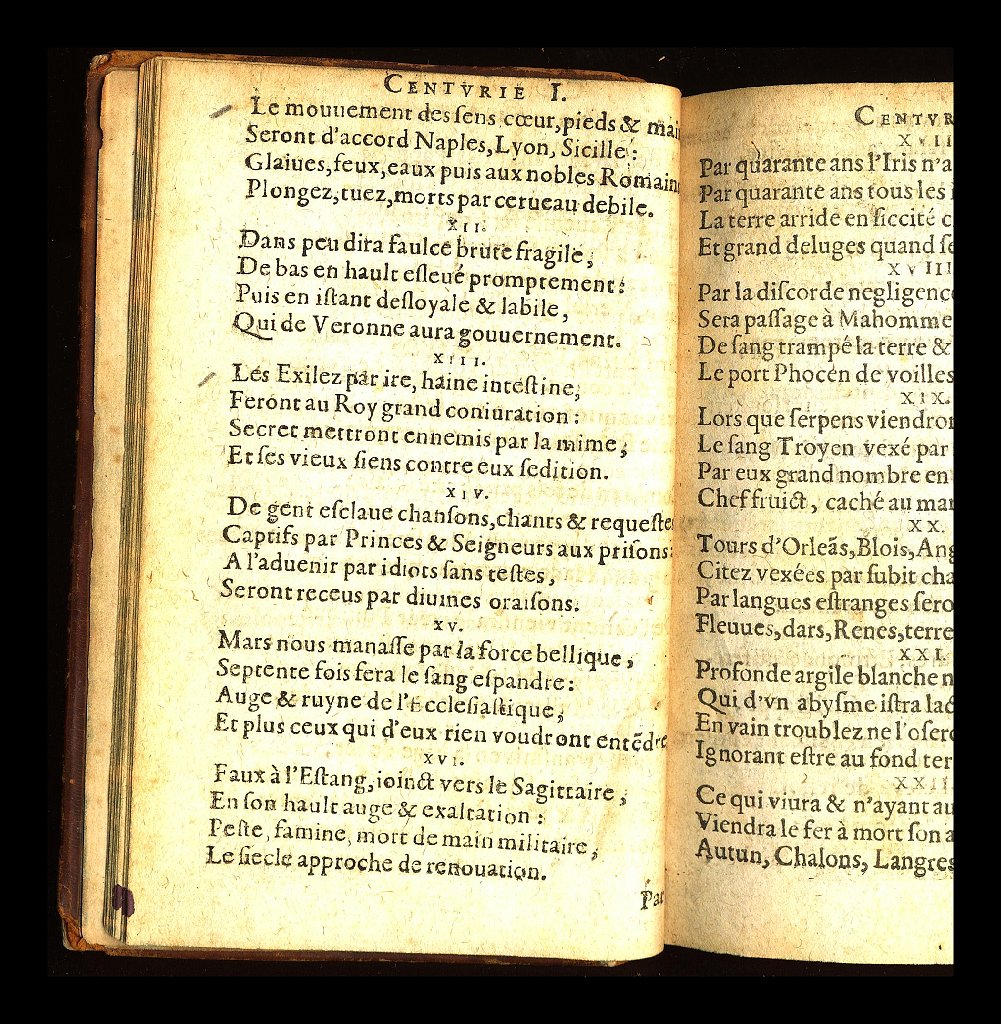 CENTVRIE I.
Le mouuement des ſens cœur, pieds & mai
Seront d'accord Naples, Lyon, Sicille:
Glaiues, feux, eaux puis aux nobles Romain
Plongez, tuez, morts par cerueau debile.
XII.
Dans peu dira faulce brute fragile,
De bas en hault eſleué promptement:
Puis en iſtant deſloyale & labile,
Qui de Veronne aura gouuernement.
XIII.
Les Exilez par ire, haine inteſtine,
Feront au Roy grand coniuration:
Secret mettront ennemis par la mime,
Et ſes vieux ſiens contre eux ſedition.
XIV.
De gent eſclaue chanſons, chants & requeſtes
Captifs par Princes & Seigneurs aux priſons:
A l'aduenir par idiots ſans teſtes,
Seront receus par diuines oraiſons.
XV.
Mars nous manaſſe par la force bellique,
Septente fois fera le ſang eſpandre:
Auge & ruyne de l'Eccleſiaſtique,
Et plus ceux qui d'eux rien voudront entẽdre
XVI.
Faux à l'Eſtang, ioinct vers le Sagittaire,
En ſon hault auge & exaltation:
Peſte, famine, mort de main militaire,
Le ſiecle approche de renouation.
Par
CENTVR
XVII
Par quarante ans l'Iris n'a
Par quarante ans tous les
La terre aride en ſiccité c
Et grand deluges quand ſe
XVIII
Par la diſcorde negligence
Sera paſſage à Mahomme
De ſang trampé la terre &
Le port Phocen de voilles
XIX.
Lors que ſerpens viendron
Le ſang Troyen vexé par
Par eux grand nombre en
Chef fruict, caché au mar
XX.
Tours d'Orleãs, Blois, Ang
Citez vexées par ſubit cha
Par langues eſtranges ſero
Fleuues, dars, Renes, terre
XXI.
Profonde argile blanche n
Qui d'vn abyſme iſtra lac
En vain troublez ne l'oſero
Ignorant eſtre au fond ter
XXII.
Ce qui viura & n'ayant au
Viendra le fer à mort ſon a
Autun, Chalons, Langres